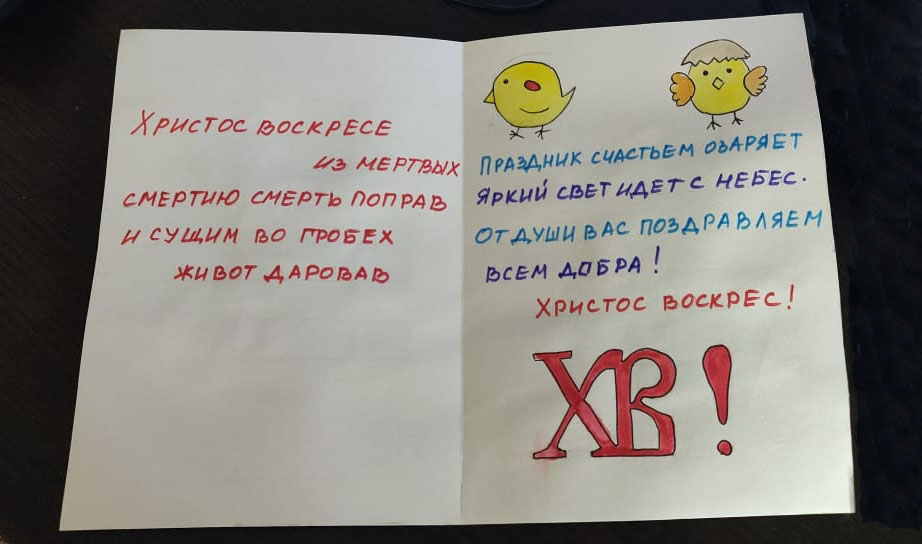 ХРИСТОС ВОСКРЕСЕ
ИЗ МЕРТВЫХ
СМЕРТИЮ СМЕРТЬ ПОПРАВ
И СУЩИМ ВО ГРОБЕХ
ЖИВОТ ДАРОВАВ
ПРАЗДНИК СЧАСТЬЕМ ОЗАРЯЕТ
ЯРКИЙ СВЕТ ИДЕТ С НЕБЕС.
ОТ ДУШИ ВАС ПОЗДРАВЛЯЕМ
ВСЕМ ДОБРА!
ХРИСТОС ВОСКРЕС!
ХВ!